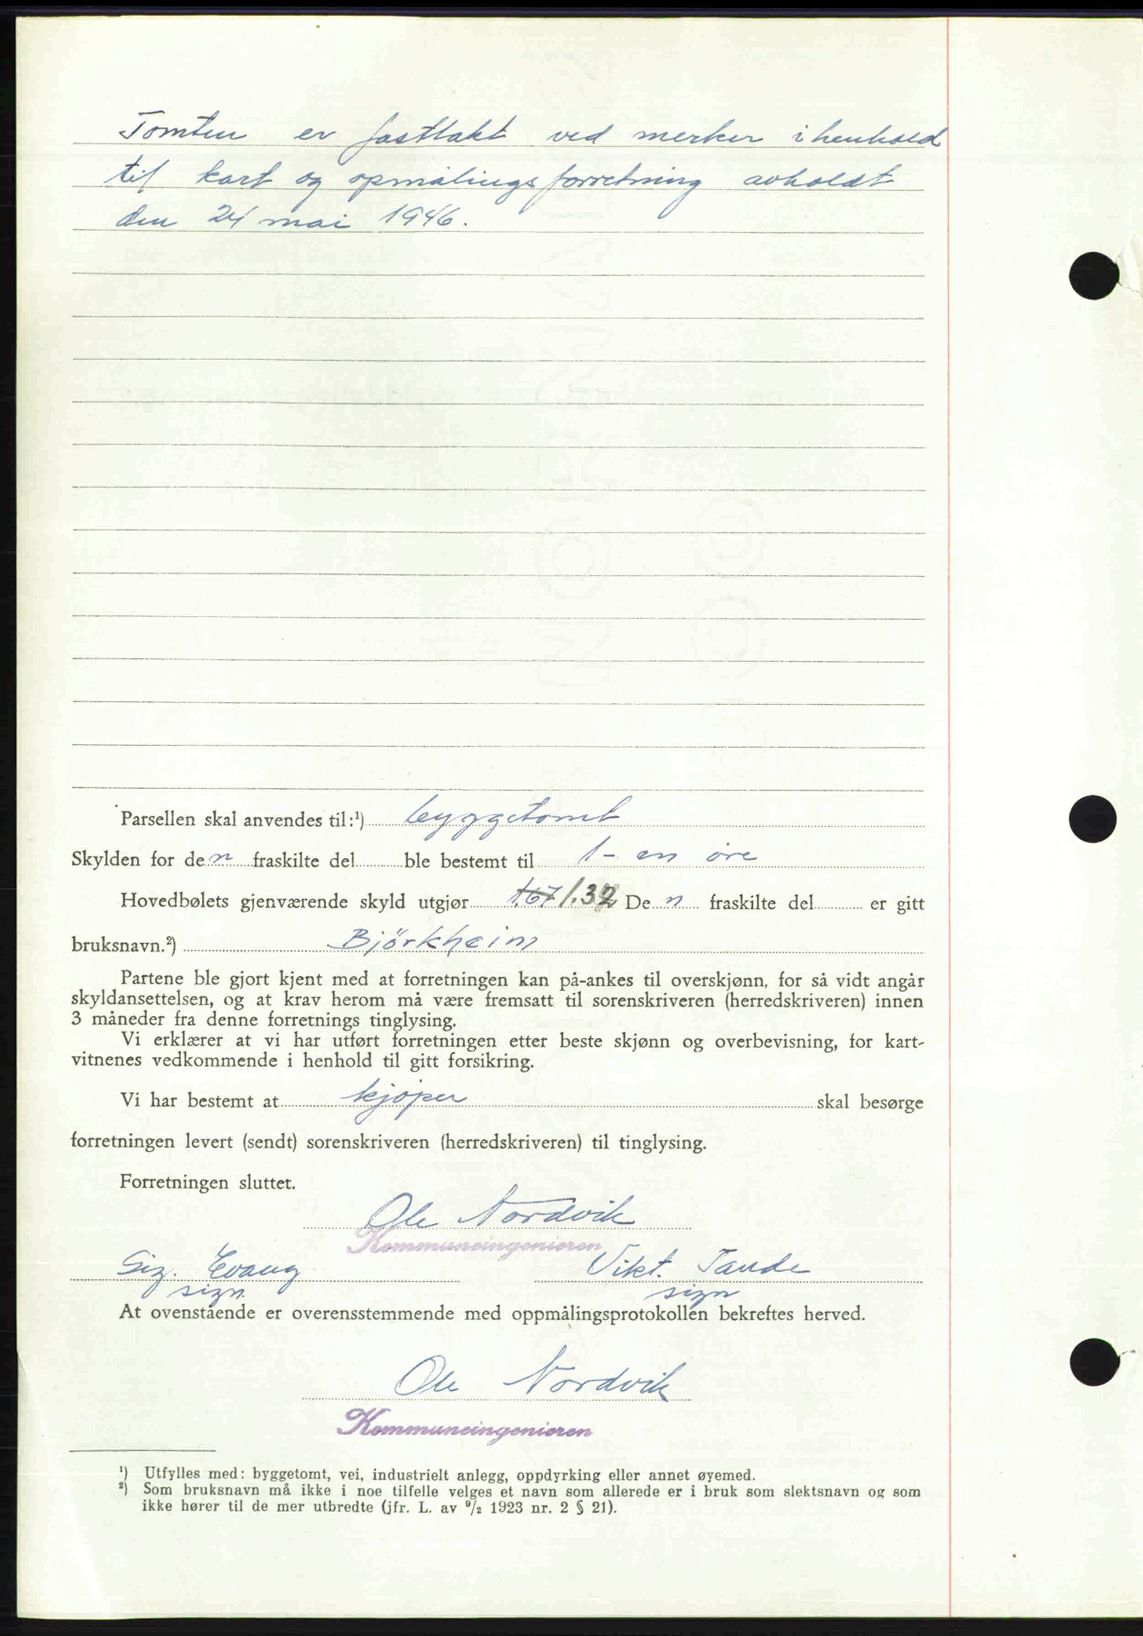 Tomten er fastlakt ved merker i henhold
til kart og opmålings forretning avholdt
den 24 mai 1946.
Parsellen skal anvendes til:¹) byggetomt
Skylden for den fraskilte del ble bestemt til 1 - en øre
Hovedbølets gjenværende skyld utgjør 1.67 1.32 Den fraskilte del er gitt
bruksnavn.²) Björkheim
Partene ble gjort kjent med at forretningen kan på-ankes til overskjønn, for så vidt angår
skyldansettelsen, og at krav herom må være fremsatt til sorenskriveren (herredskriveren) innen
3 måneder fra denne forretnings tinglysing.
Vi erklærer at vi har utført forretningen etter beste skjønn og overbevisning, for kart-
vitnenes vedkommende i henhold til gitt forsikring.
Vi har bestemt at kjøper skal besørge
forretningen levert (sendt) sorenskriveren (herredskriveren) til tinglysing.
Forretningen sluttet.
Ole Nordvik
Kommuneingeniøren
Sig. Evang Vikt. Tande
sign. sign
At ovenstående er overensstemmende med oppmålingsprotokollen bekreftes herved.
Ole Nordvik
Kommuneingeniøren
¹) Utfylles med: byggetomt, vei, industrielt anlegg, oppdyrking eller annet øyemed.
²) Som bruksnavn må ikke i noe tilfelle velges et navn som allerede er i bruk som slektsnavn og som
ikke hører til de mer utbredte (jfr. L. av ⁹/₂ 1923 nr. 2 § 21).